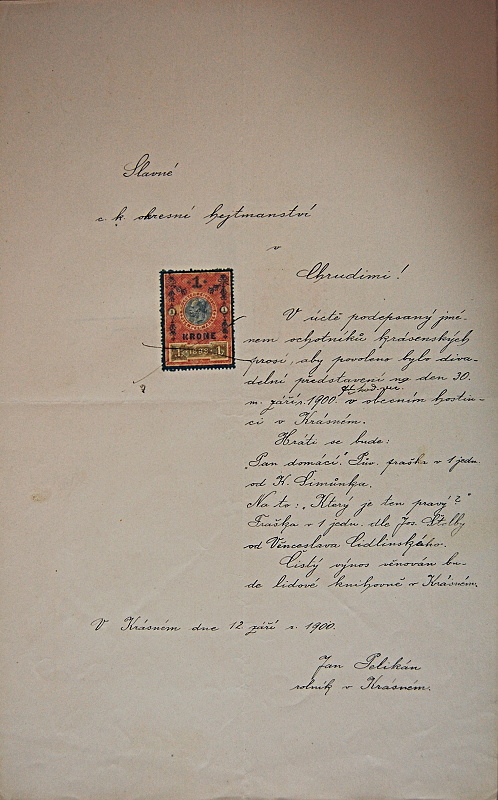 Slavné
c. k. okresní hejtmanství
v
Chrudimi!
1
KRONE
1898
V úctě podepsaný jmé-
nem ochotníků krásenských
prosí, aby povoleno bylo diva-
delní představení na den 30.
m. září r. 1900. v obecním hostin-
ci v Krásném.
Hráti se bude:
"Pan domácí." Pův. fraška v 1 jedn.
od K. Šimůnka.
Na to: „Který je ten pravý?"
Fraška v 1 jedn. dle Jos. Štolby
od Věnceslava Lidlinského.
Čistý výnos věnován bu-
de lidové knihovně v Krásném.
V Krásném dne 12. září r. 1900.
Jan Pelikán
rolník v Krásném.